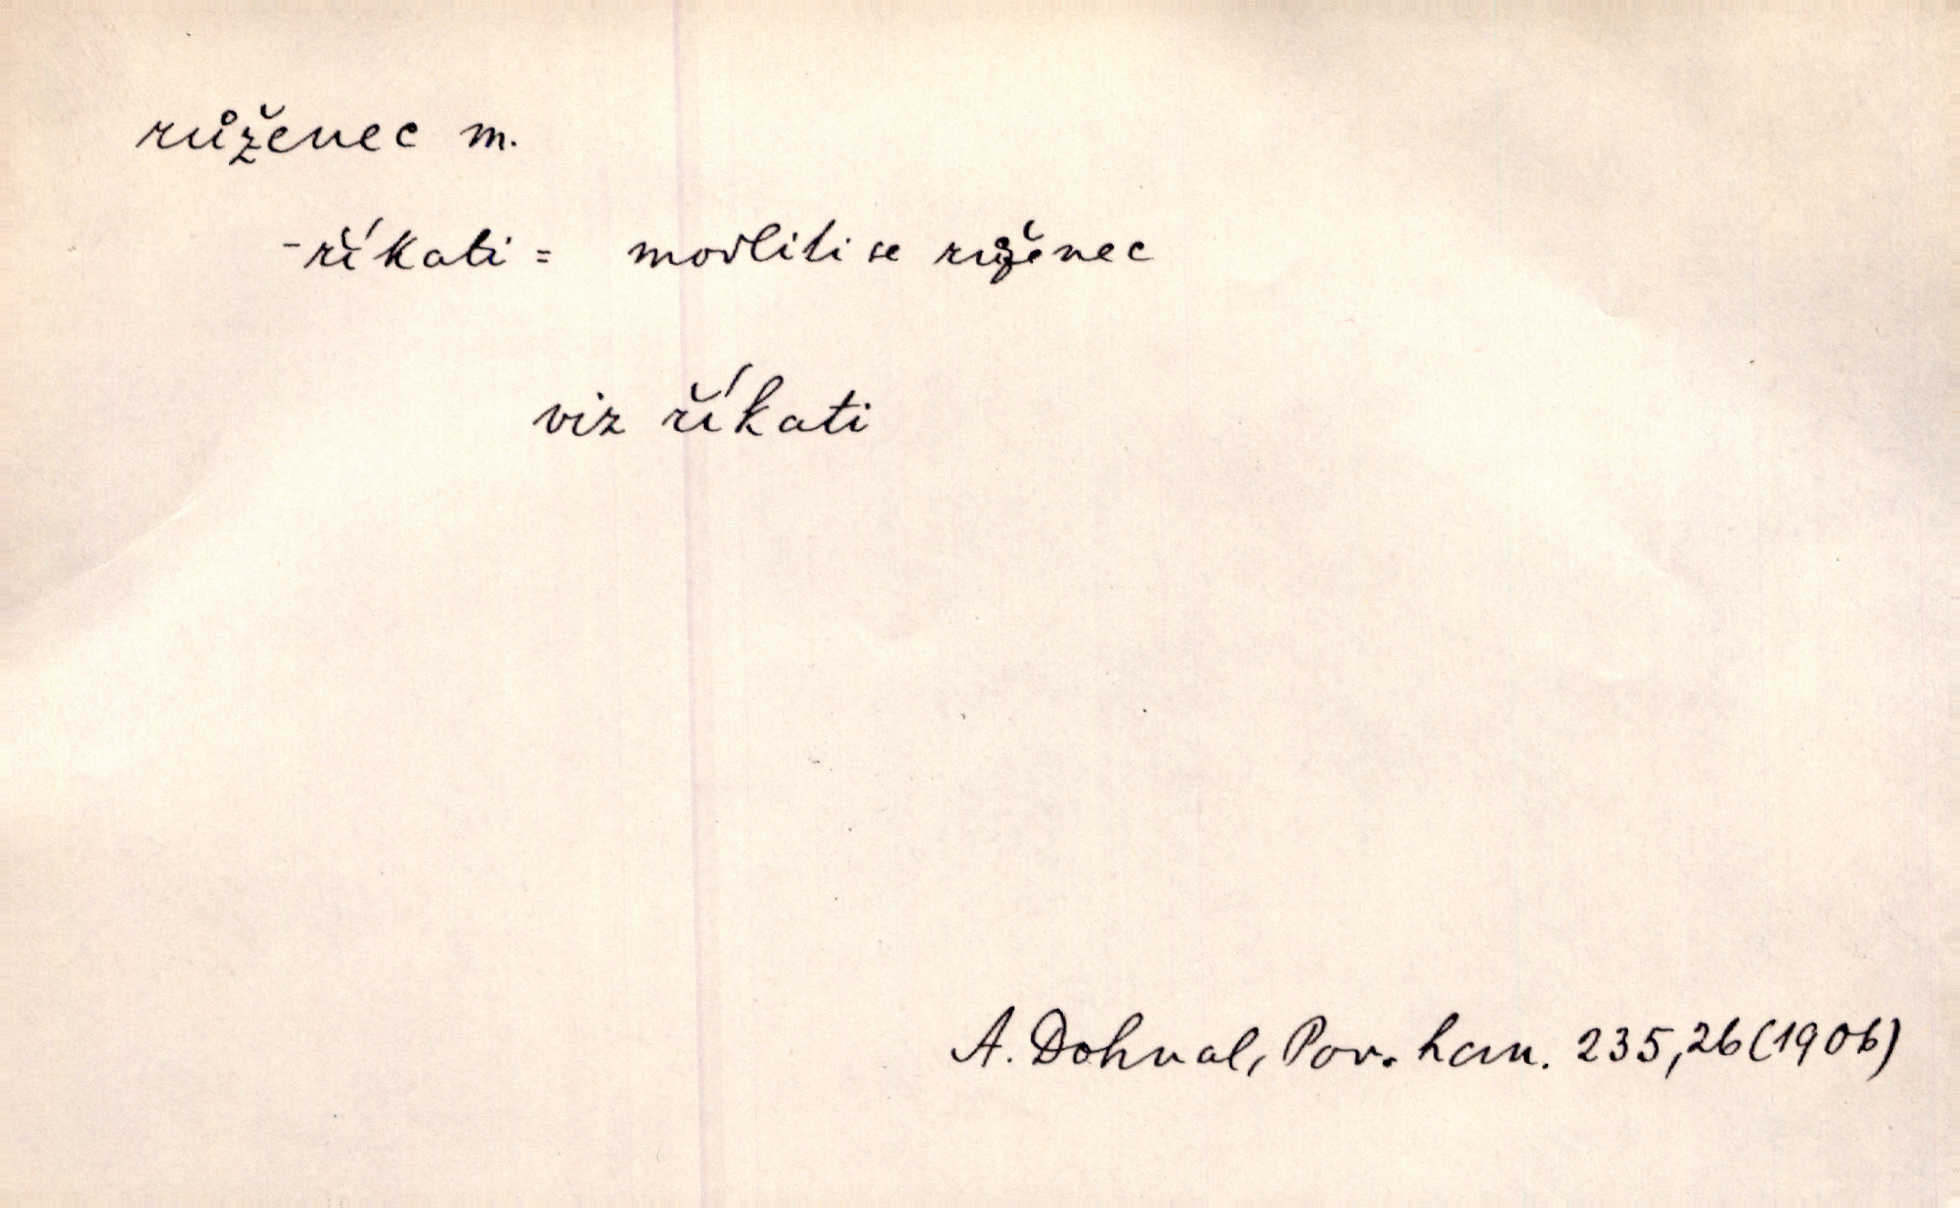 růženec m.
-říkati = modliti se růženec
viz říkati
A. Dohnal, Pov. han. 235,26 (1906)